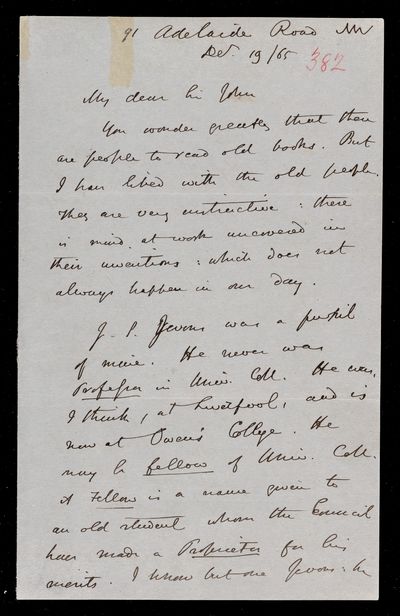 91 Adelaide Road NW
Dec. 19/65
382
My dear Sir John
You wonder greatly that there
are people to read old books. But
I have lived with the old people.
They are very instructive : there
is mind at work uncovered in
their inventions : which does not
always happen in our day.
J. S. Jevons was a pupil
of mine. He never was
Professor in Univ. Coll. He was,
I think, at Liverpool, and is
now at Owen's College. He
may be fellow of Univ. Coll.
A Fellow is a name given to
an old student whom the Council
have made a Proprietor for his
merits. I know but one Jevons : he